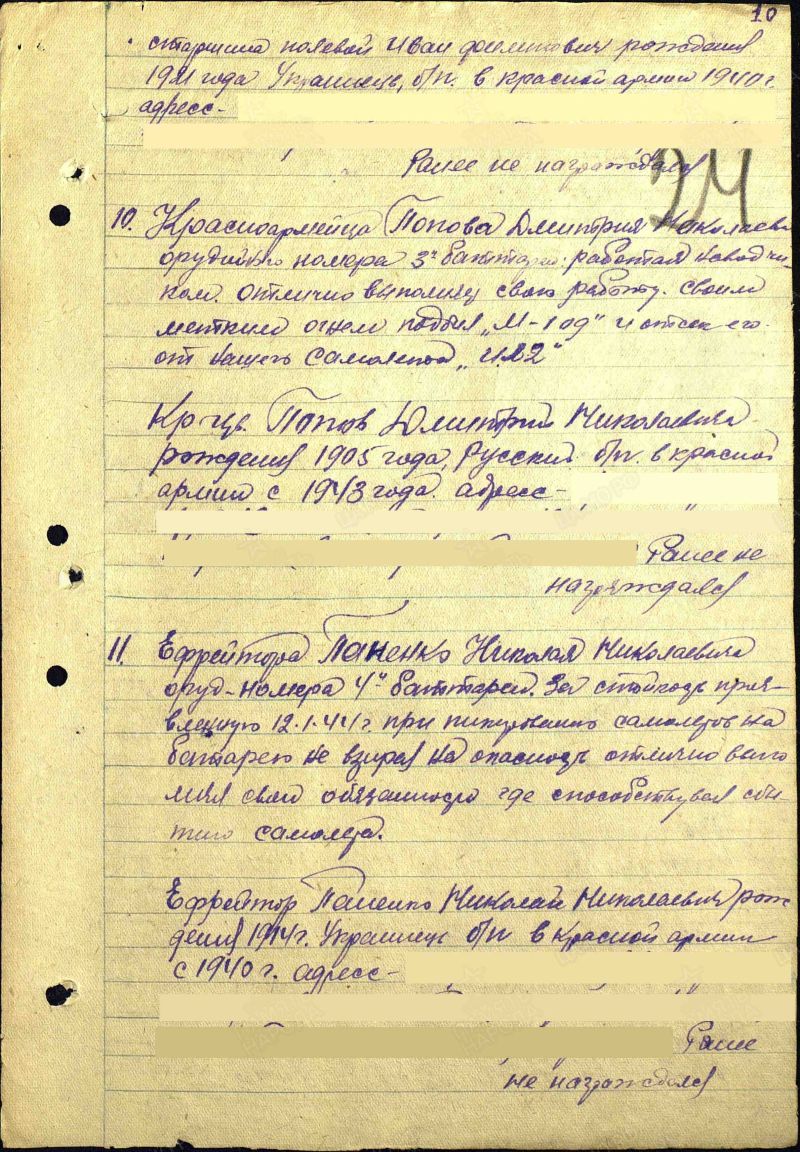 10
старшина полевой Иван рождения
1921 года Украинец, б/п. в красной армии 1940 г.
адресс-
Ранее не награждался
24
10. Красноармейца Попова Дмитрия Николаеви
орудийного номера 3й баттареи работая наводчи
ком. отлично выполняя свою работу. своим
метким огнем подбил „М-109" и отсек его
от нашего самолета „ИЛ2"
Кр-ц Попов Дмитрий Николаевич
рождения 1905 года, Русский б/п. в красной
армии с 1943 года. адресс-
Ранее не
награждался
11. Ефрейтора Паненко Николая Николаевича
оруд-номера 4й баттареи. За стойкость проя-
вленную 12.1.44 г. при пикировании самолетов на
батарею не взирая на опасность отлично выпо
лнял свои обязанности где способствовал сби
тию самолета.
Ефрейтор Паненко Николай Николаевич рож
дения 1914 г. Украинец б/п в Красной армии
с 1940 г. адресс-
Ранее
не награждался